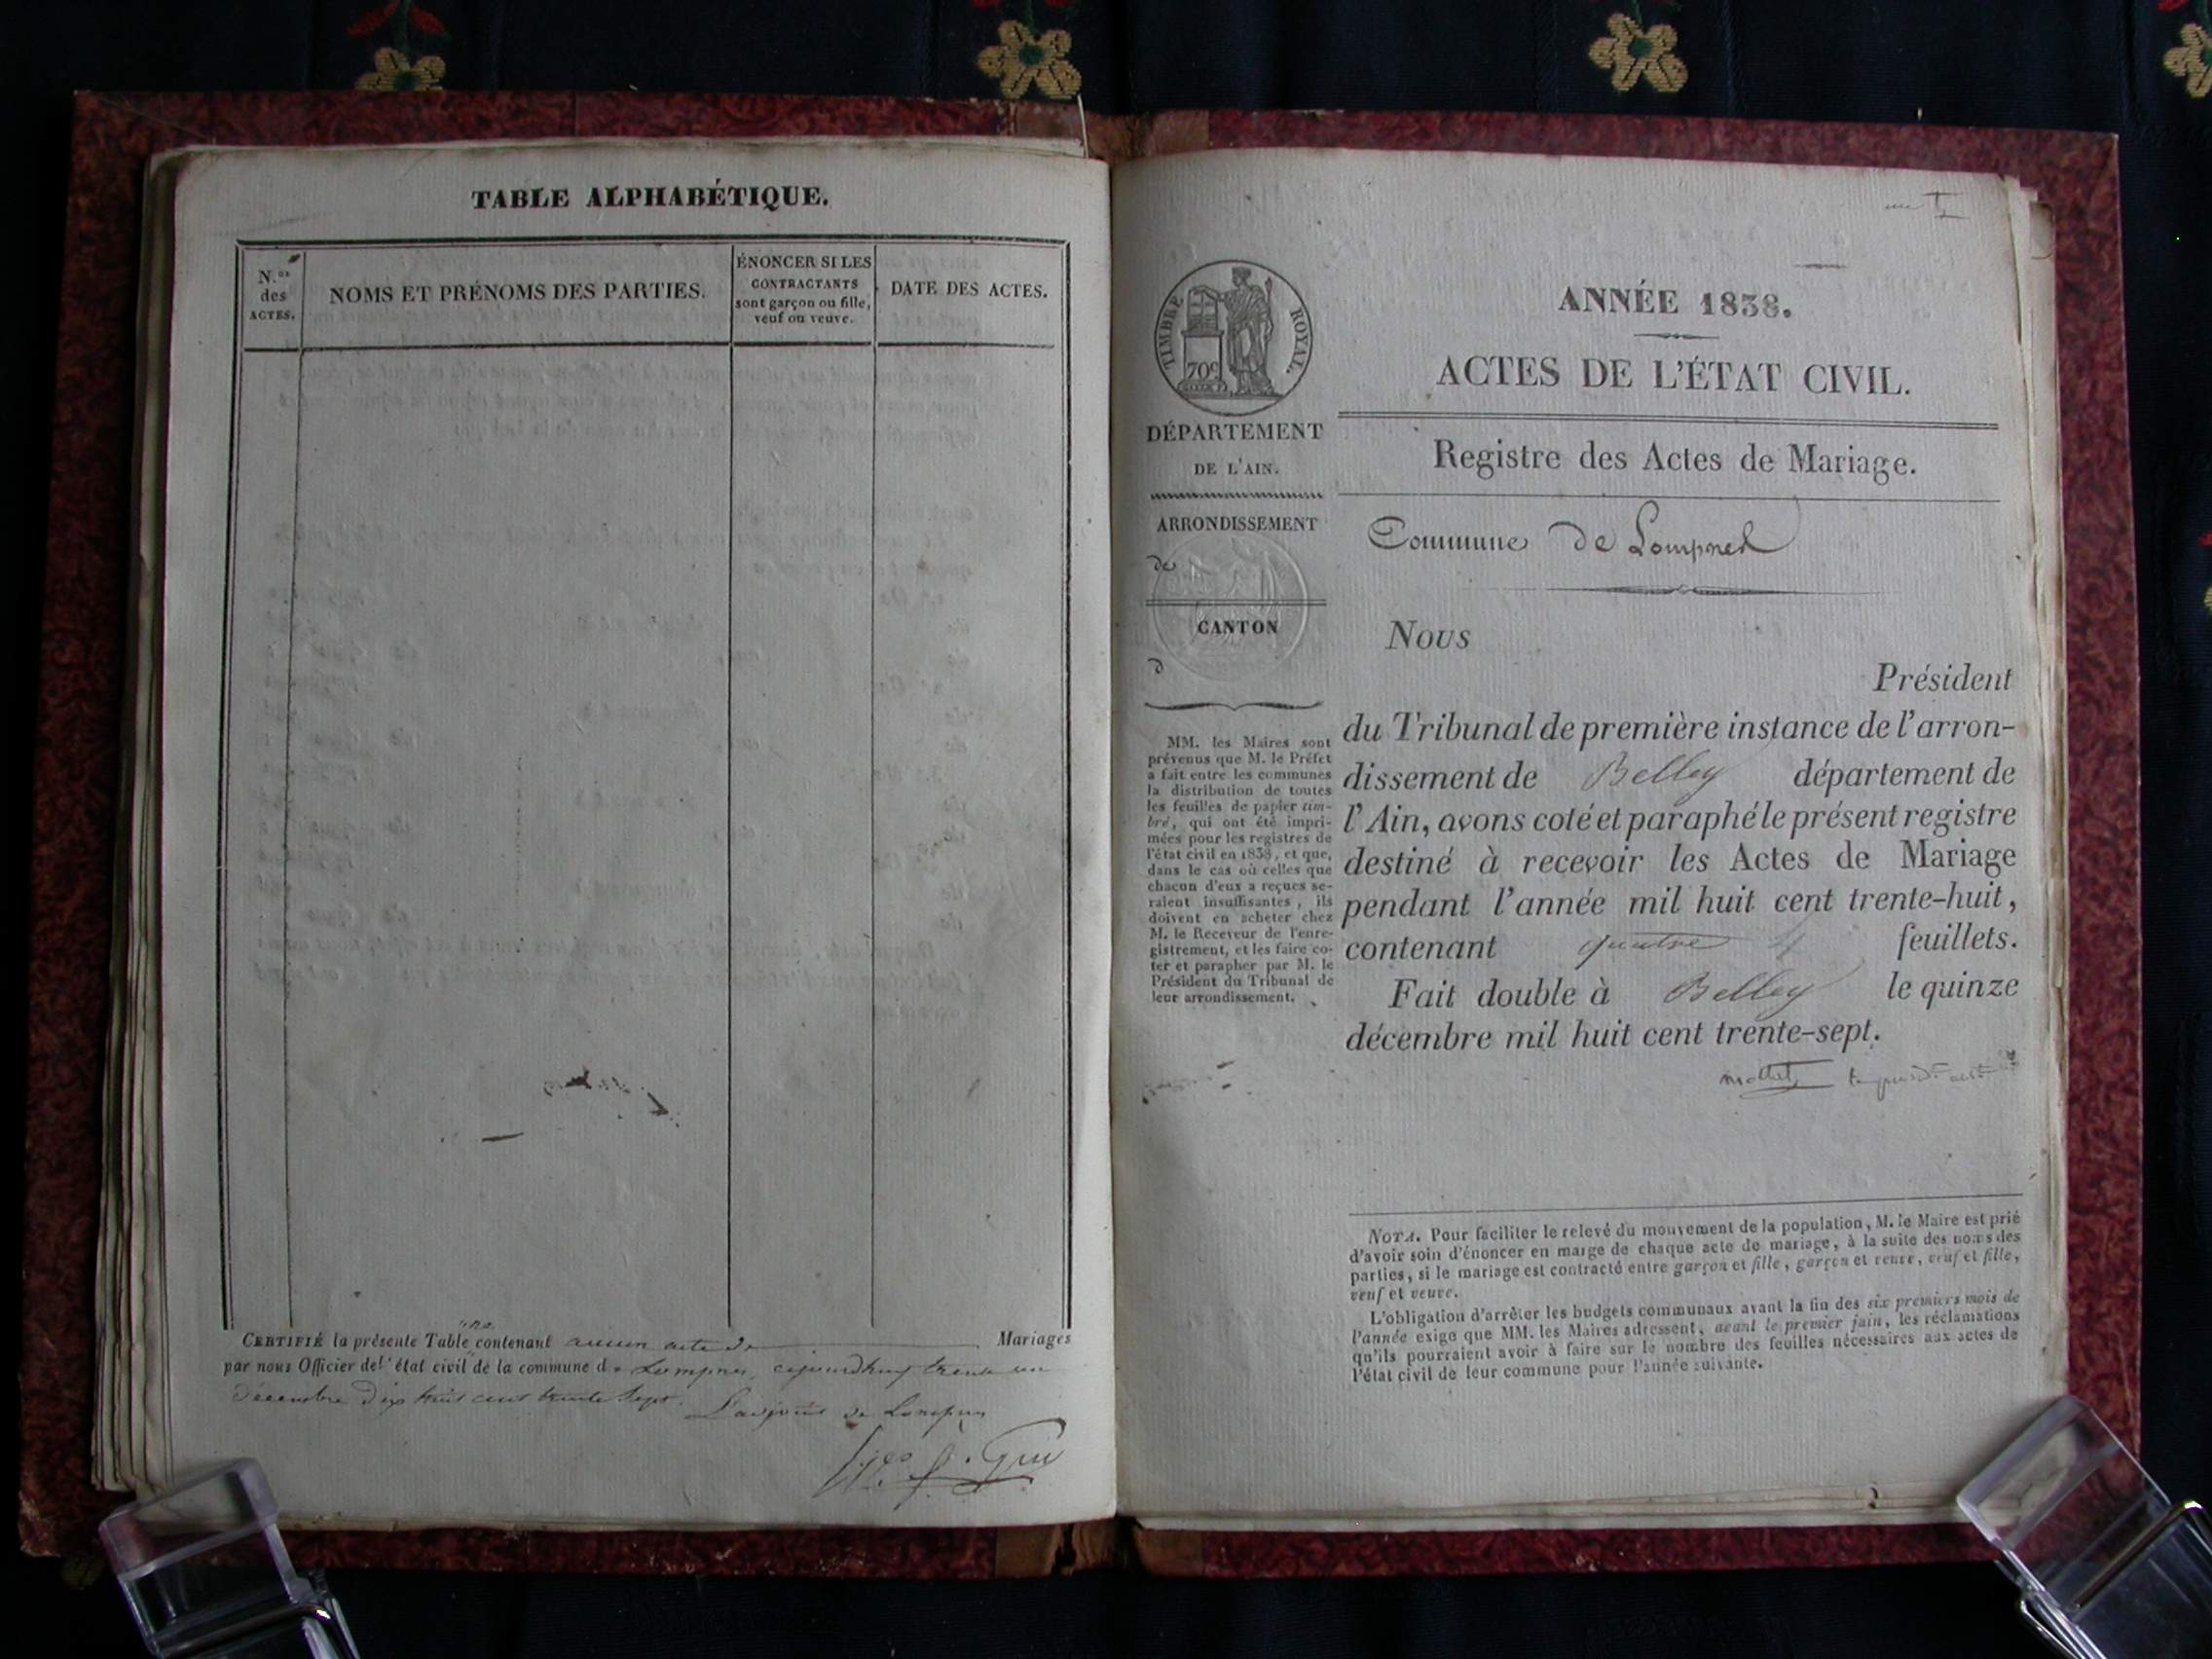 TABLE ALPHABÉTIQUE.
N.os
des
ACTES.
NOMS ET PRÉNOMS DES PARTIES.
ÉNONCER SI LES
CONTRACTANTS
sont garçon ou fille,
veuf ou veuve.
DATE DES ACTES.
CERTIFIÉ la présente Table contenant aucun acte de Mariages
par nous Officier de l'état civil de la commune de Lompnes, cejourdhuy trente un
décembre dix huit cent trente sept. L'adjoint de Lompnes
ANNÉE 1838.
ACTES DE L'ÉTAT CIVIL.
Registre des Actes de Mariage.
TIMBRE ROYAL.
70c
DÉPARTEMENT
DE L'AIN.
ARRONDISSEMENT
de
CANTON
d
MM. les Maires sont
prévenus que M. le Préfet
a fait entre les communes
la distribution de toutes
les feuilles de papier tim-
bré, qui ont été impri-
mées pour les registres de
l'état civil en 1838, et que,
dans le cas où celles que
chacun d'eux a reçues se-
raient insuffisantes, ils
doivent en acheter chez
M. le Receveur de l'enre-
gistrement, et les faire co-
ter et parapher par M. le
Président du Tribunal de
leur arrondissement.
Commune de Lompnes
Nous
Président
du Tribunal de première instance de l'arron-
dissement de Belley département de
l'Ain, avons coté et paraphé le présent registre
destiné à recevoir les Actes de Mariage
pendant l'année mil huit cent trente-huit,
contenant quatre 4 feuillets.
Fait double à Belley le quinze
décembre mil huit cent trente-sept.
NOTA. Pour faciliter le relevé du mouvement de la population, M. le Maire est prié
d'avoir soin d'énoncer en marge de chaque acte de mariage, à la suite des noms des
parties, si le mariage est contracté entre garçon et fille, garçon et veuve, veuf et fille,
veuf et veuve.
L'obligation d'arrêter les budgets communaux avant la fin des six premiers mois de
l'année exige que MM. les Maires adressent, avant le premier juin, les réclamations
qu'ils pourraient avoir à faire sur le nombre des feuilles nécessaires aux actes de
l'état civil de leur commune pour l'année suivante.